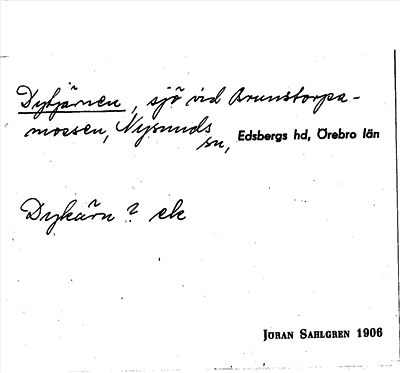 Dytjärnen, sjö vid Brunstorpa-
mossen, Nysunds
sn, Edsbergs hd, Örebro län
Dykärn ? ek
JÖRAN SAHLGREN 1906